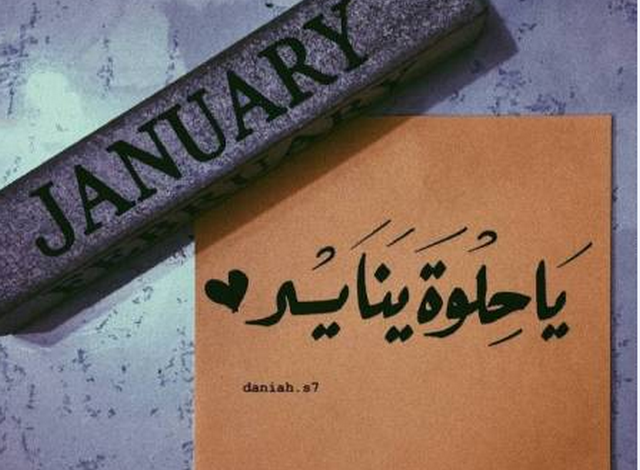 JANUARY
FEBRUARY
يَا حِلُوَة يَنَايَسِر
daniah.s7